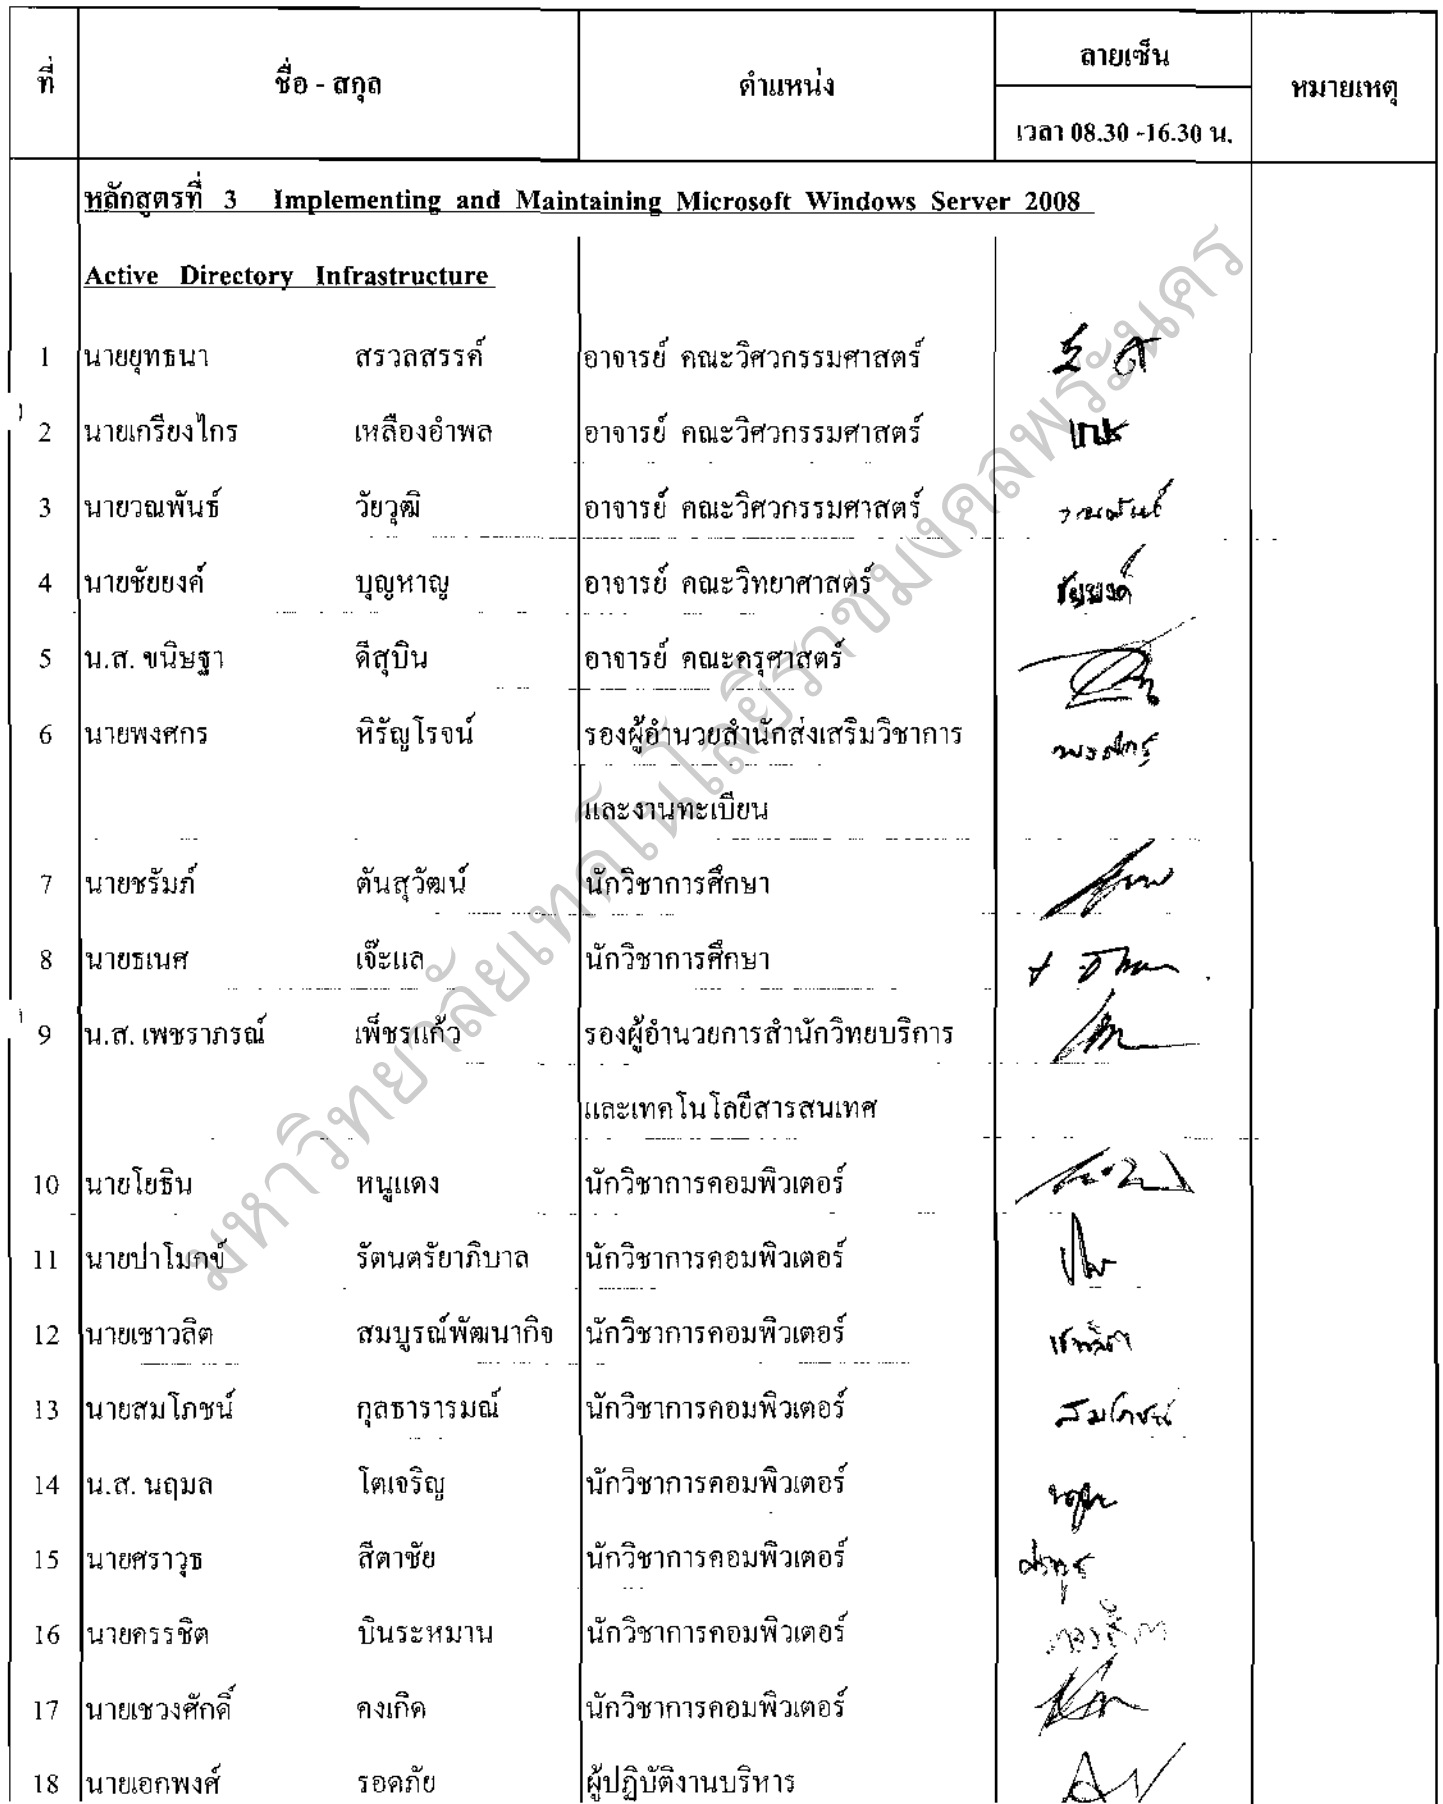 ที่ ชื่อ - สกุล ตำแหน่ง ลายเซ็น หมายเหตุ
เวลา 08.30 -16.30 น.
หลักสูตรที่ 3 Implementing and Maintaining Microsoft Windows Server 2008
Active Directory Infrastructure
1 นายยุทธนา สรวลสรรค์ อาจารย์ คณะวิศวกรรมศาสตร์
2 นายเกรียงไกร เหลืองอำพล อาจารย์ คณะวิศวกรรมศาสตร์
3 นายวณพันธ์ วัยวุฒิ อาจารย์ คณะวิศวกรรมศาสตร์ วณพันธ์
4 นายชัยยงค์ บุญหาญ อาจารย์ คณะวิทยาศาสตร์ ชัยยงค์
5 น.ส. ขนิษฐา ดีสุบิน อาจารย์ คณะครุศาสตร์
6 นายพงศกร หิรัญโรจน์ รองผู้อำนวยสำนักส่งเสริมวิชาการ พงศกร
และงานทะเบียน
7 นายชรัมภ์ ตันสุวัฒน์ นักวิชาการศึกษา
8 นายธเนศ เจ๊ะแล นักวิชาการศึกษา
9 น.ส. เพชราภรณ์ เพ็ชรแก้ว รองผู้อำนวยการสำนักวิทยบริการ
และเทคโนโลยีสารสนเทศ
10 นายโยธิน หนูแดง นักวิชาการคอมพิวเตอร์
11 นายปาโมกข์ รัตนตรัยาภิบาล นักวิชาการคอมพิวเตอร์
12 นายเชาวลิต สมบูรณ์พัฒนากิจ นักวิชาการคอมพิวเตอร์ เชาวลิต
13 นายสมโภชน์ กุลธารารมณ์ นักวิชาการคอมพิวเตอร์ สมโภชน์
14 น.ส. นฤมล โตเจริญ นักวิชาการคอมพิวเตอร์
15 นายศราวุธ สีตาชัย นักวิชาการคอมพิวเตอร์
16 นายครรชิต บินระหมาน นักวิชาการคอมพิวเตอร์
17 นายเชวงศักดิ์ คงเกิด นักวิชาการคอมพิวเตอร์
18 นายเอกพงศ์ รอดภัย ผู้ปฏิบัติงานบริหาร
มหาวิทยาลัยเทคโนโลยีราชมงคลพระนคร